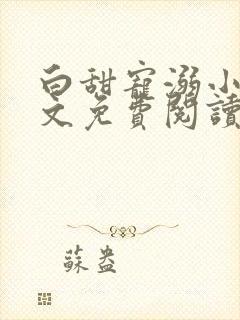 白甜寵溺小
文免費閱讀
蘇盎